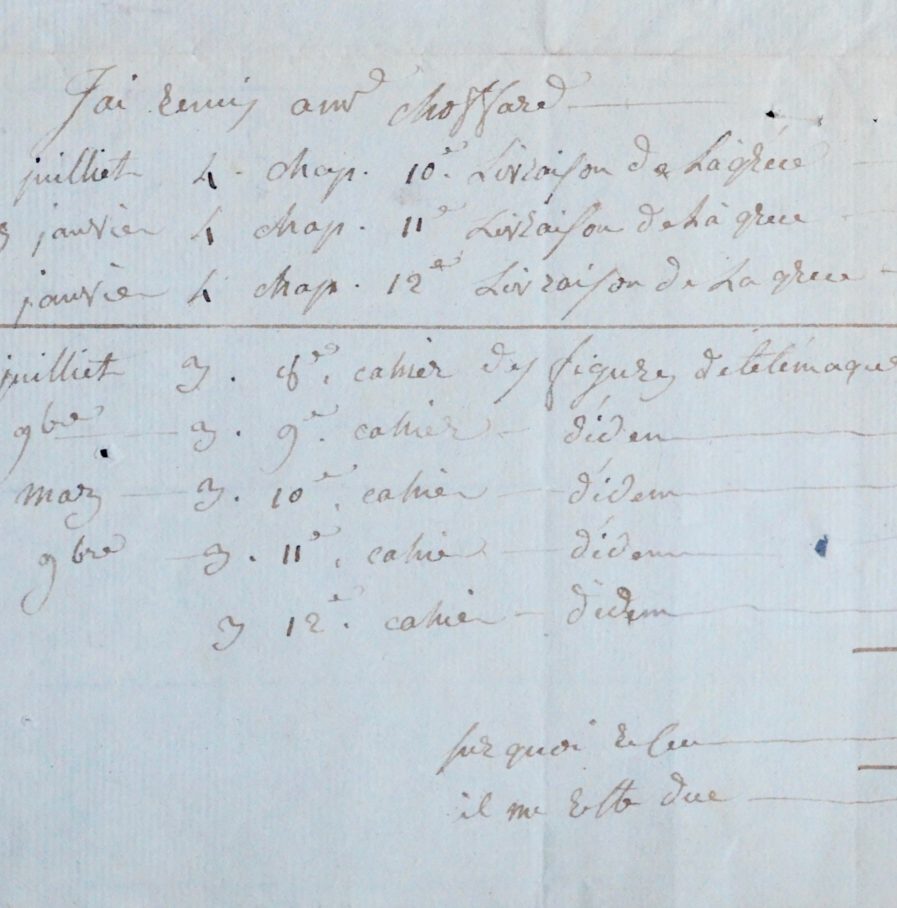 J'ai remis a mr choffard
juilliet 4 chap. 10e Livraison de La gréce
janvier 4 chap. 11e Livraison de La grece
janvier 4 chap. 12e Livraison de La grece
juilliet 3. 8e. cahier des figures de télémaque
9bre 3. 9e. cahier didem
mars 3. 10e. cahier didem
9bre 3. 11e. cahier didem
3 12e. cahier didem
sur quoi reseu
il me reste due